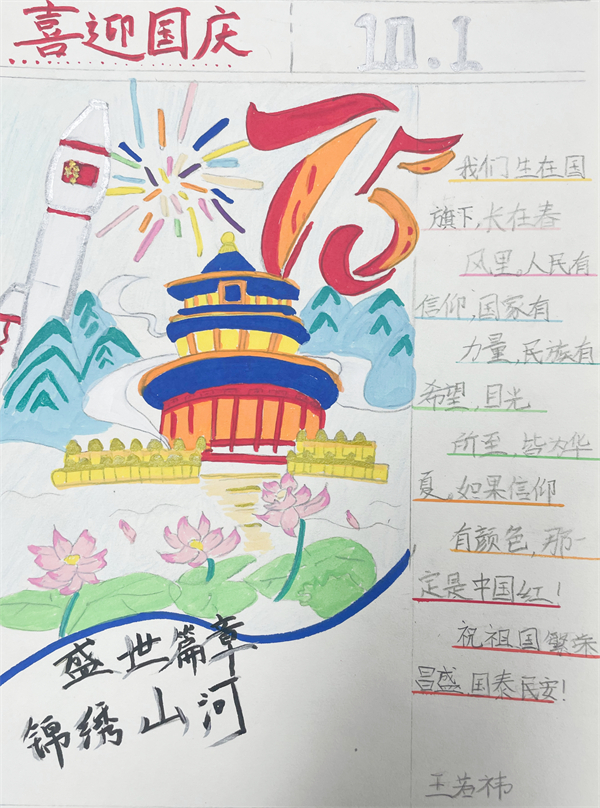 喜迎国庆
10.1
75
我们生在国
旗下,长在春
风里。人民有
信仰,国家有
力量,民族有
希望,目光
所至,皆为华
夏。如果信仰
有颜色,那一
定是中国红!
祝祖国繁荣
昌盛国泰民安!
盛世篇章
锦绣山河
王若祎